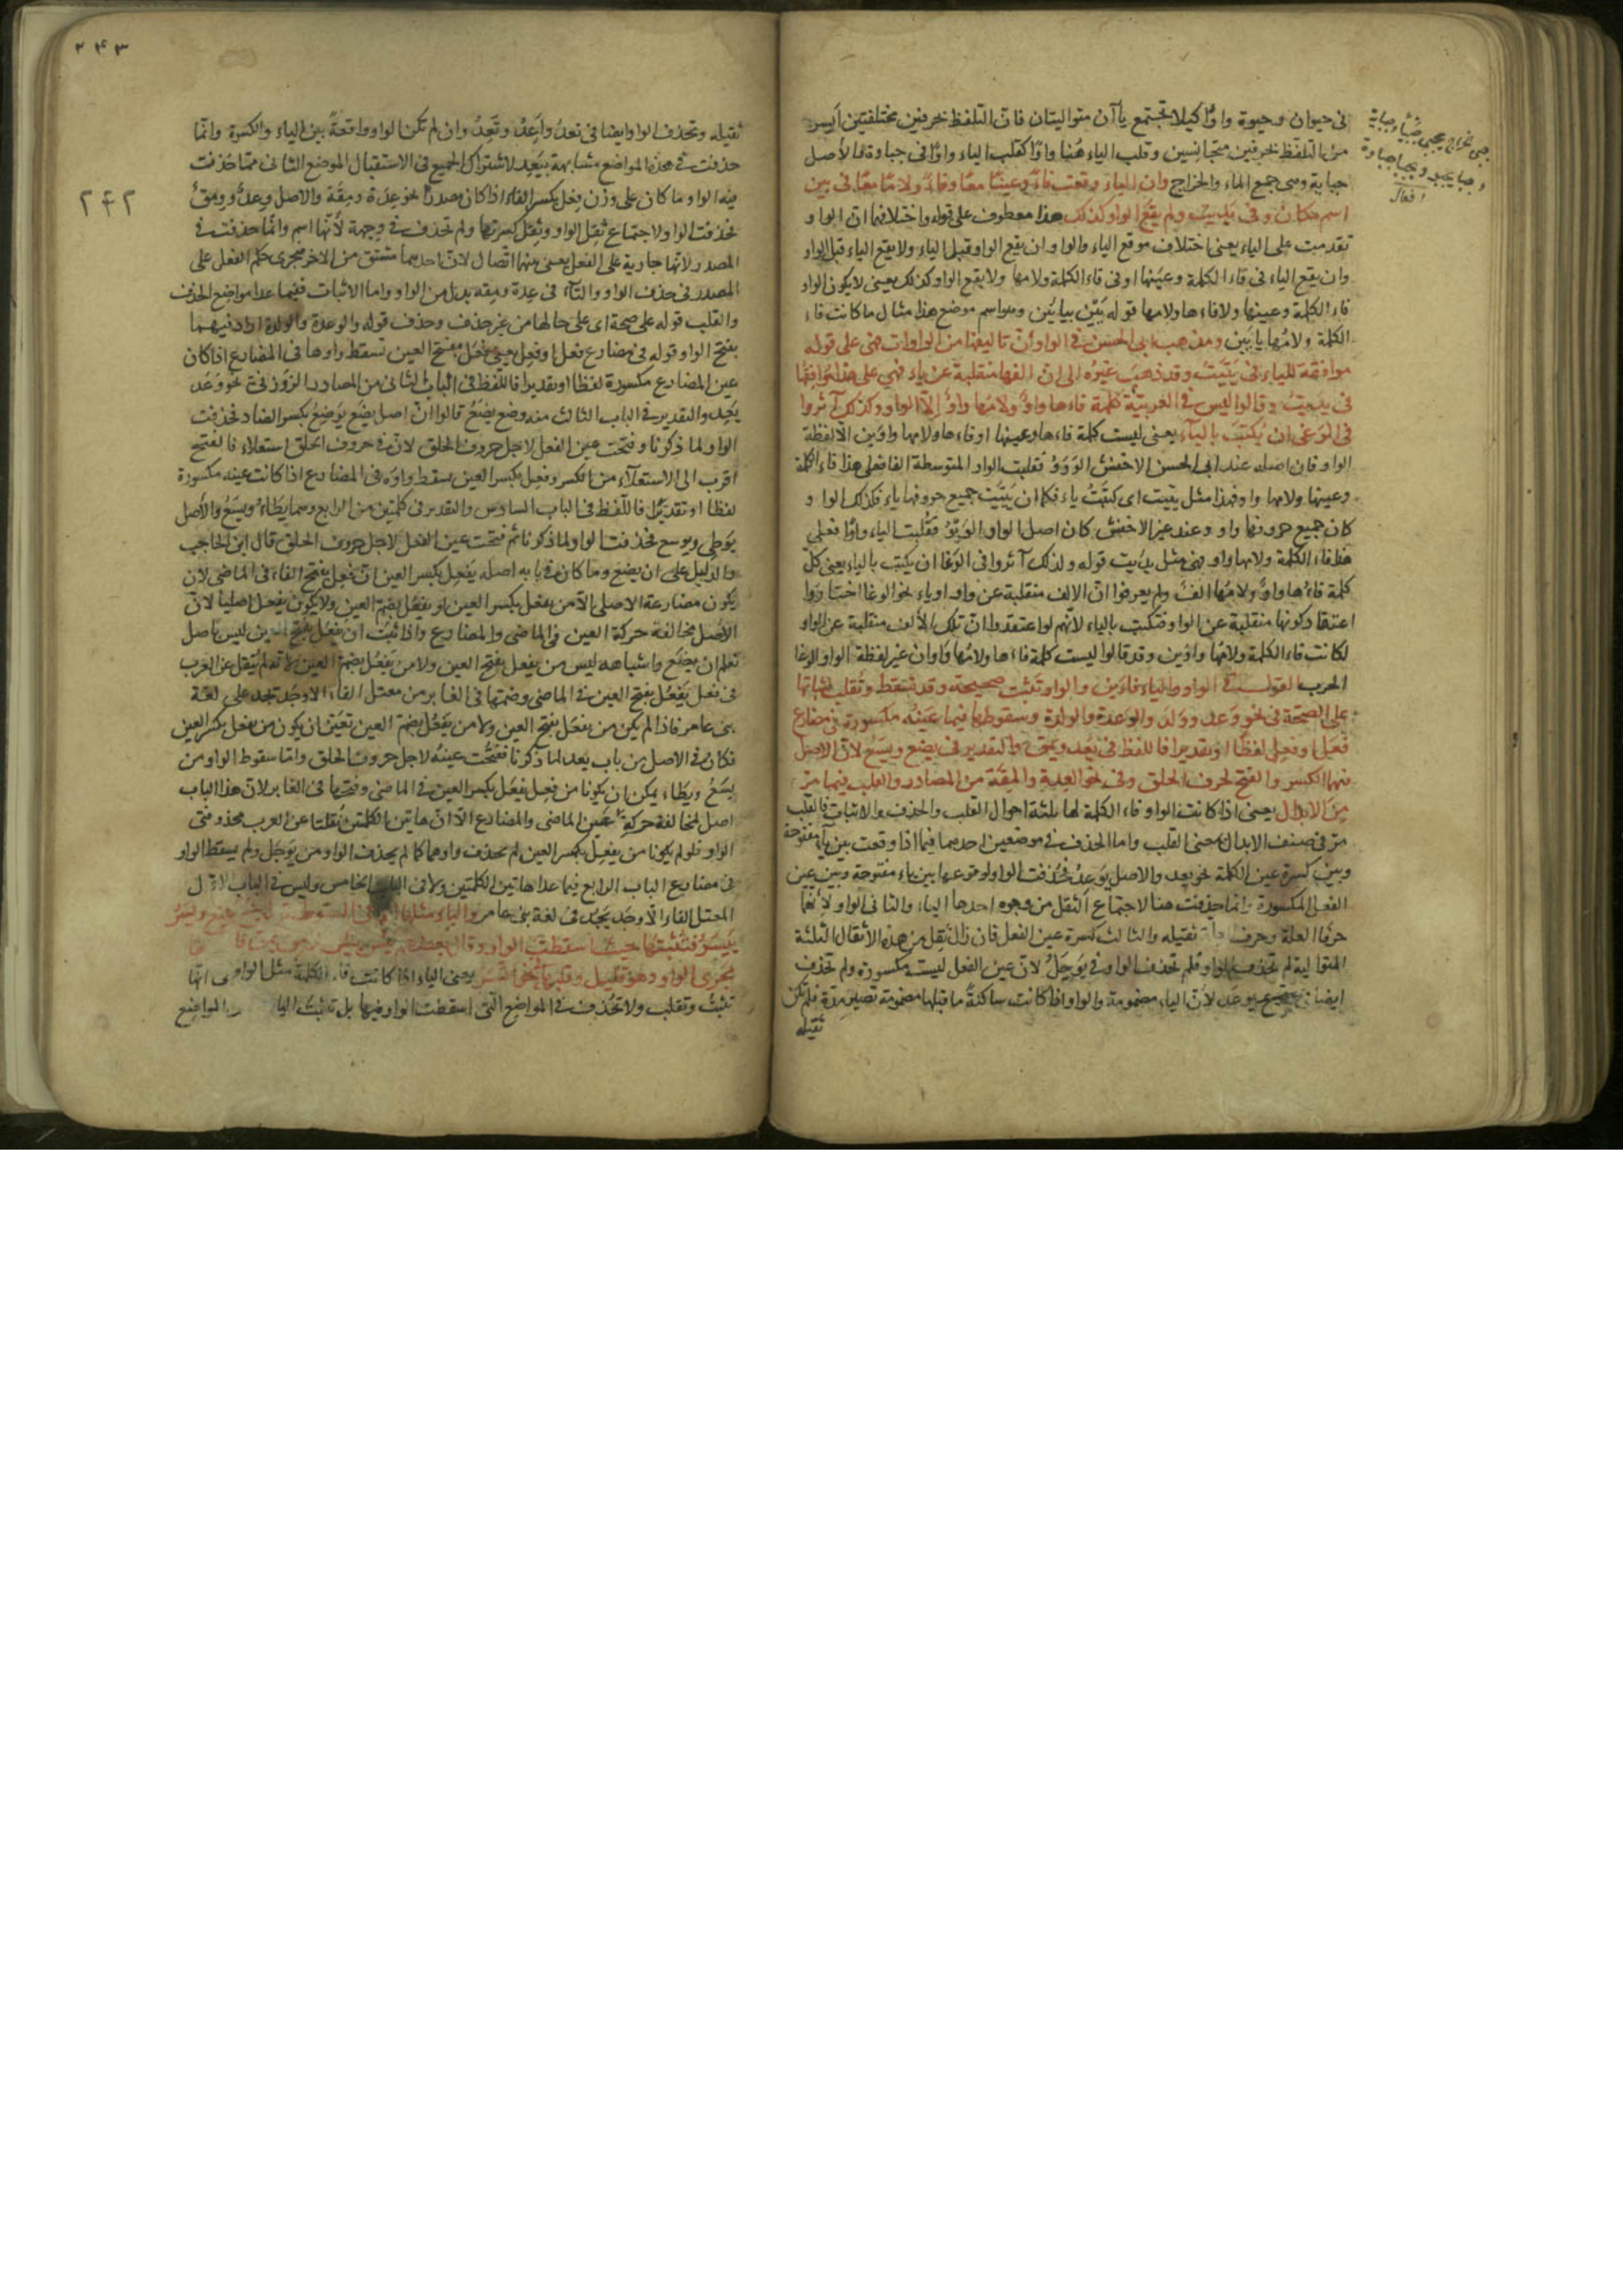 في حيوان وحيوة واوًا كيلا تجتمع ياآن متواليتان فان التلفظ بحرفين مختلفين ايسر
من التلفظ بحرفين متجانسين وقلب الياء هنا واوًا كقلب الياء واوًا في جباوة والاصل
جباية وهى جمع الماء والخراج وان الياء وقعت فاءً وعينًا معًا وفاءً ولامًا معًا في يين
اسم مكان وفي يديت ولم يقع الواو كذلك هذا معطوف على قوله واختلافهما ان الواو
تقدمت على الياء يعنى اختلاف موقع الياء والواو ان يقع الواو قبل الياء ولا يقع الياء قبل الواو
وان يقع الياء في فاء الكلمة وعينها او في فاء الكلمة ولامها ولا يقع الواو كذلك يعنى لا يكون الواو
فاء الكلمة وعينها ولا فاءها ولامها قوله يين بيائين وهو اسم موضع هذا مثال ما كانت فاء
الكلمة ولامها يابين ومذهب ابى الحسن في الواو أن تاليفها من الواوات فهى على قوله
موافقة للياء في ييّت وقد ذهب غيره الى ان الفها منقلبة عن ياء فهي على هذا موافقتها
في يديت وقالوا ليس في العربية كلمة فاءها واو ولامها واو الا الواو وكذلك آثروا
في الوغى ان يكتب بالياء يعنى ليست كلمة فاءها وعينها او فاءها ولامها واوين الا لفظة
الواو فان اصله عند ابى الحسن الاخفش الووو فقلبت الواو المتوسطة الفا فعلى هذا فاء الكلمة
وعينها ولامها واو فهذا مثل ييّت اى كتبت ياء فكما ان ييّت جميع حروفها ياء فكذلك الواو
كان جميع حروفها واو وعند غير الاخفش كان اصل الواو الويو فقلبت الياء واوًا فعلى
هذا فاء الكلمة ولامها واو فهى مثل يديت قوله ولذلك آثروا في الوغا ان يكتب بالياء يعنى كل
كلمة فاءها واو ولامها الف ولم يعرفوا ان الالف منقلبة عن واو او ياء نحو الوغا اختاروا
اعتقاد كونها منقلبة عن الواو فتكتب بالياء لانهم لو اعتقدوا ان تلك الألف منقلبة عن الواو
لكانت فاء الكلمة ولامها واوين وقد قالوا ليست كلمة فاءها ولامها واوان غير لفظة الواو الوغا
الحرب القول في الواو والياء فاءين والواو تثبت صحيحة وقد تسقط وتقلب فثباتها
على الصحة في نحو وعد وولد والوعدة والولدة وسقوطها فيما عينه مكسورة في مضارع
فعل او فعل لفظًا او تقديرا فاللفظ في يعد ويمق والتقدير في يضع ويسع لان الاصل
فيهما الكسر والفتح لحرف الحلق وفي نحو العدة والمقة من المصادر والقلب فيما مر
من الابدال يعنى اذا كانت الواو فاء الكلمة لها ثلثة احوال القلب والحذف والاثبات فالقلب
مر في صنف الابدال معنى القلب واما الحذف في موضعين احدهما فيما اذا وقعت بين ياء مفتوحة
وبين كسرة عين الكلمة نحو يعد والاصل يوعد فحذفت الواو لوقوعها بين ياء مفتوحة وبين عين
الفعل المكسورة وانما حذفت هنا لاجتماع الثقل من وجوه احدها الياء والثانى الواو لانهما
حرفا العلة وحرف ثقيلة والثالث كسرة عين الفعل فان زال ثقل من هذه الأثقال الثلثة
المتوالية لم تحذف الواو فلم تحذف الواو في يوجل لان عين الفعل ليست مكسورة ولم تحذف
ايضا يوعد لأن الياء مضمومة والواو اذا كانت ساكنة ما قبلها مضمومة تصير مدة فلم تكن
ثقيله
جبى خراج يجبى جبيًا وجباية
وجبا يجبو ويجبا جباوة
٢٤٣
٢٤٢
ثقيله وتحذف الواو ايضا في نعد واعد وتعد وان لم تكن الواو واقعة بين الياء والكسرة وانما
حذفت في هذه المواضع مشابهة بيعد لاشتراك الجميع في الاستقبال الموضع الثانى مما حذفت
فيه الواو ما كان على وزن فعل بكسر الفاء اذا كان مصدرًا نحو عدة ومقة والاصل وعد وومق
فحذفت الواو لاجتماع ثقل الواو وثقل كسرتها ولم تحذف في وجهة لأنها اسم وانما حذفت في
المصدر لانها جارية على الفعل يعنى بينهما اتصال لان احدهما مشتق من الاخر فجرى حكم الفعل على
المصدر في حذف الواو والتاء في عدة ومقه بدل من الواو واما الاثبات ففيما عدا مواضع الحذف
والقلب قوله على صحة اى على حالها من غير حذف وحذف قوله والوعدة والولدة او اد فيهما
بفتح الواو قوله في مضارع فعل او فعل يعنى فعل بفتح العين تسقط واوها في المضارع اذا كان
عين المضارع مكسورة لفظا او تقديرا فاللفظ في الباب الثانى من المصادر الزوزني نحو وعد
يعد والتقدير في الباب الثالث منه وضع يضع قالوا ان اصل يضع يوضع بكسر الضاد فحذفت
الواو لما ذكرنا وفتحت عين الفعل لاجل حروف الحلق لان في حروف الحلق استعلاء فالفتح
اقرب الى الاستعلاء من الكسر وفعل بكسر العين يسقط واوه في المضارع اذا كانت عينه مكسورة
لفظا او تقديرًا فاللفظ في الباب السادس والتقدير في كلمتين من الرابع وهما يطاء ويسع والأصل
يوطى ويوسع فحذفت الواو لما ذكرنا ثم فتحت عين الفعل لاجل حروف الحلق قال ابن الحاجب
والدليل على ان يضع وما كان من بابه اصله يفعل بكسر العين ان فعل بفتح الفاء في الماضى لان
يكون مضارعه الاصلى الا من يفعل بكسر العين او يفعل بضم العين ولا يكون يفعل اصليا لان
الأصل مخالفة حركة العين في الماضى والمضارع واذا ثبت ان يفعل بفتح العين ليس باصل
تعلم ان يضع واشباهه ليس من يفعل بفتح العين ولا من يفعل بضم العين لانه لم ينقل عن العرب
في فعل يفعل بفتح العين في الماضى وضمها في الغابر من معتل الفاء الا وجد تجد على لغة
بنى عامر فاذا لم يكن من يفعل بفتح العين ولا من يفعل بضم العين تعين ان يكون من يفعل بكسر العين
فكان في الاصل من باب يعد لما ذكرنا ففتحت عينه لاجل حروف الحلق واما سقوط الواو من
يسع ويطاء يمكن ان يكونا من فعل يفعل بكسر العين في الماضى وفتحها في الغابر لان هذا الباب
اصل لمخالفة حركة عين الماضى والمضارع الا ان هاتين الكلمتين نقلتا عن العرب محذوفتى
الواو فلو لم يكونا من يفعل بكسر العين لم يحذف واوهما كما لم يحذف الواو من يوجل ولم يسقط الواو
في مضارع الباب الرابع فيما عدا هاتين الكلمتين ولا في الباب الخامس وليس في الباب الاول
المعتل الفاء الا وجد يجد في لغة بنى عامر والياء مثلها
فتثبتها حيث اسقطت الواو وقال بعضهم
مجرى الواو وهو قليل وقلبها في نحو اتسر يعنى الياء اذا كانت فاء الكلمة مثل الواو انها
تثبت وتقلب ولا تحذف في المواضع التى اسقطت الواو فيها بل تثبت الياء المواضع